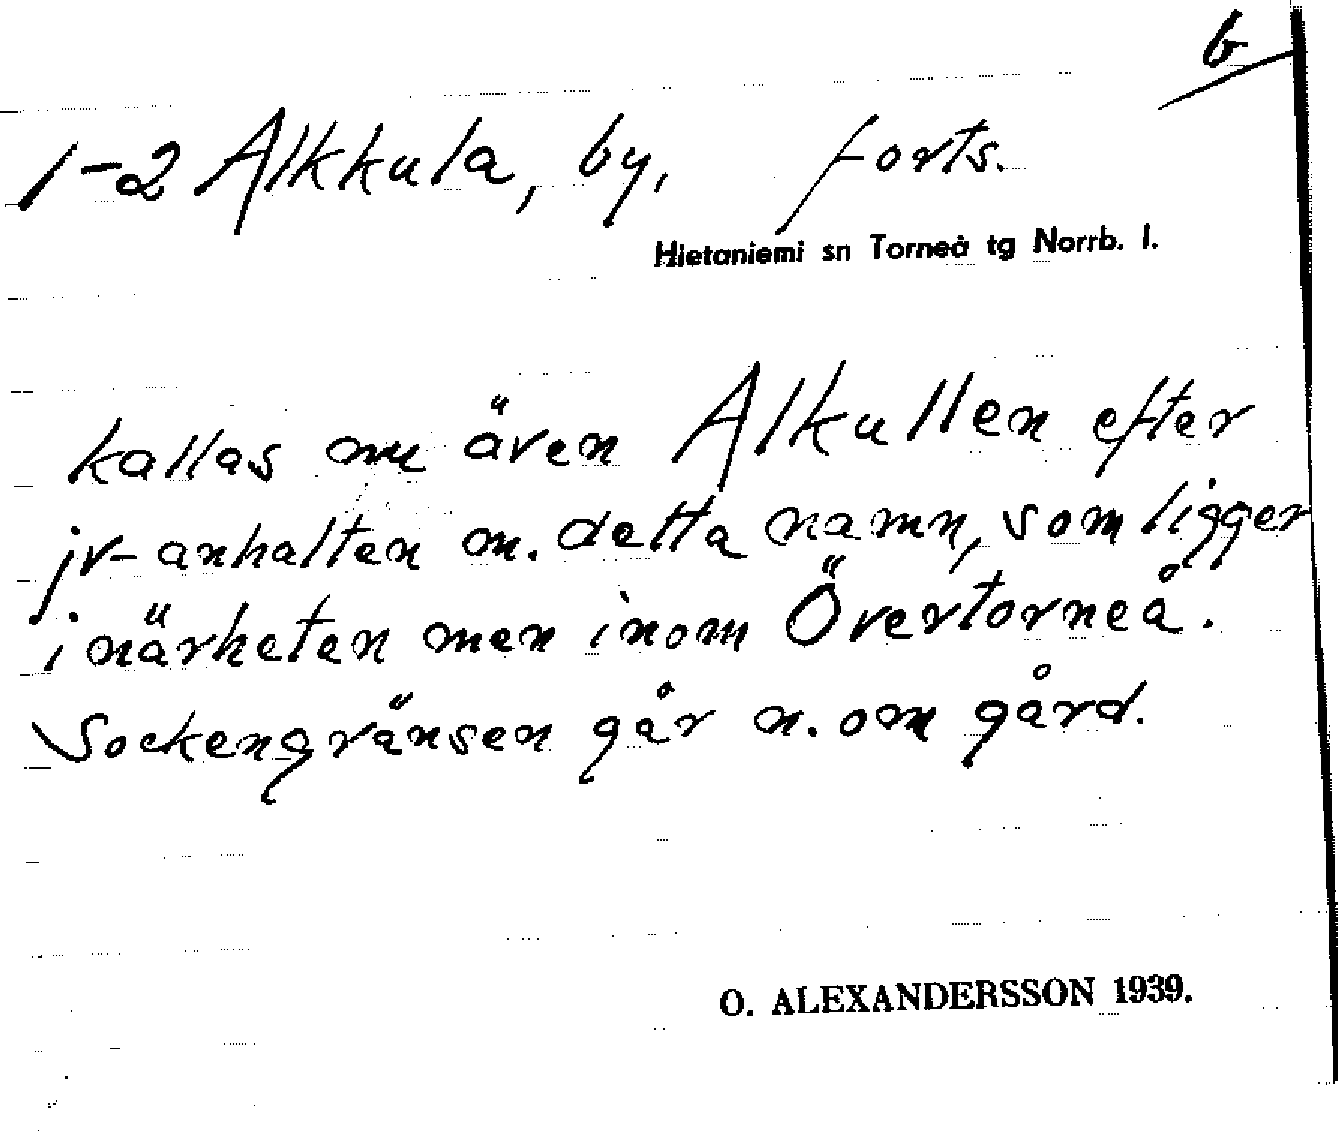 b
1-2 Alkkula, by, forts.
Hietaniemi sn Torneå tg Norrb. l.
kallas nu även Alkullen efter
jv-anhalten m. detta namn, som ligger
i närheten men inom Övertorneå.
Sockengränsen går n. om gård.
O. ALEXANDERSSON 1939.